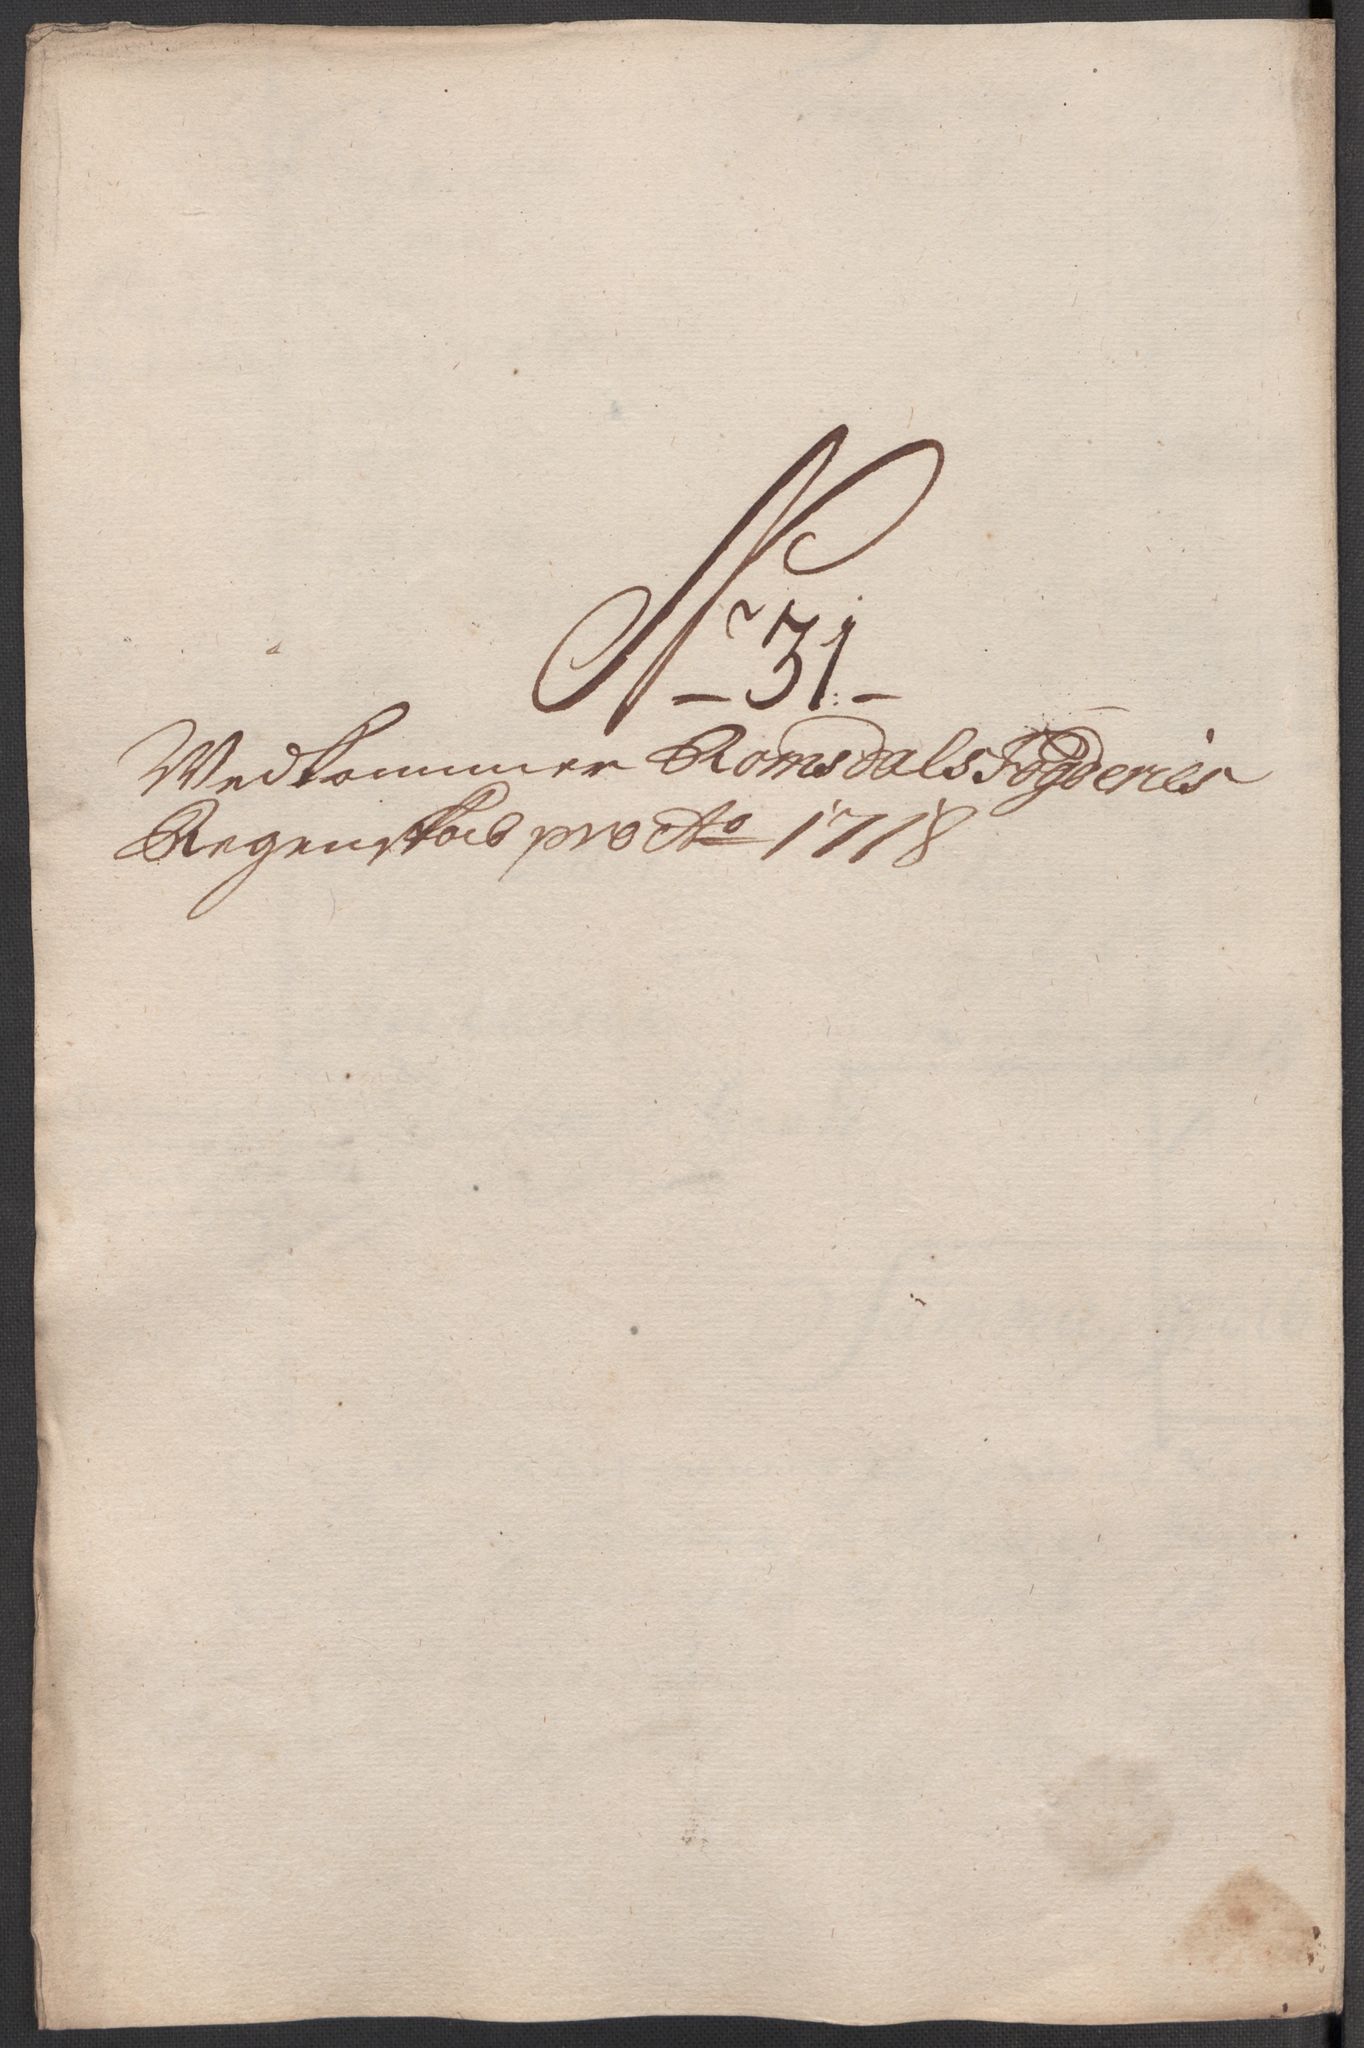 No 31
Wedkommer Romsdals Fogderies
Regenskab pro Ao 1718